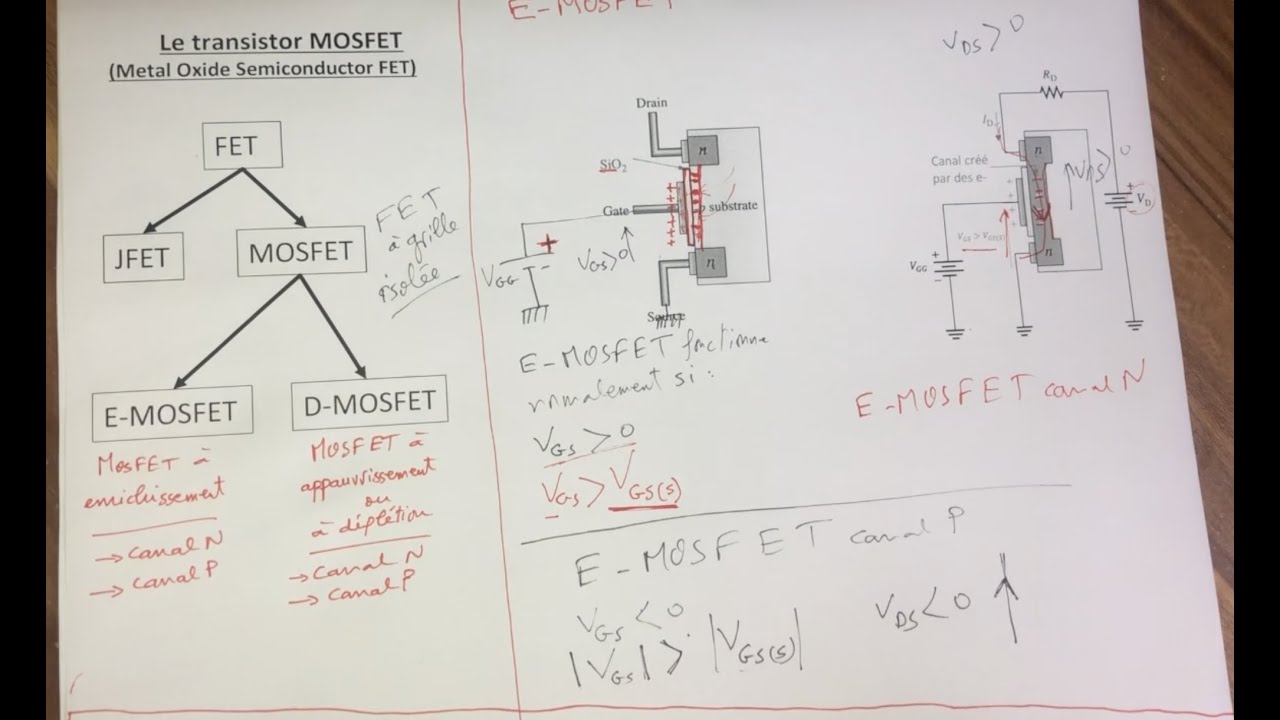 Le transistor MOSFET
(Metal Oxide Semiconductor FET)
FET
JFET
MOSFET
FET
à grille
isolée
E-MOSFET
D-MOSFET
MosFET à
enrichissement
→ Canal N
→ Canal P
MOSFET à
appauvrissement
ou
à déplétion
→ Canal N
→ Canal P
E-MOSFET
Drain
n
SiO2
Gate
p substrate
+
-
VGG
VGS>0
n
Source
E-MOSFET fonctionne
normalement si :
VGS > 0
VGS > VGS(s)
VDS > 0
RD
ID
n
Canal créé
par des e-
VDS > 0
+
VD
-
VGS > VGS(s)
VGG
+
-
n
E-MOSFET canal N
E-MOSFET canal P
VGS < 0
|VGS| > |VGS(s)|
VDS < 0